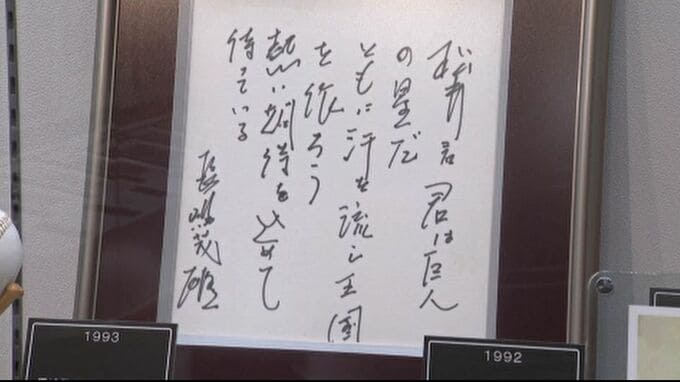 松井君 君は巨人
の星だ
ともに汗を流し王国
を作ろう
熱い期待をこめて
待っている
長嶋茂雄
1993
1992